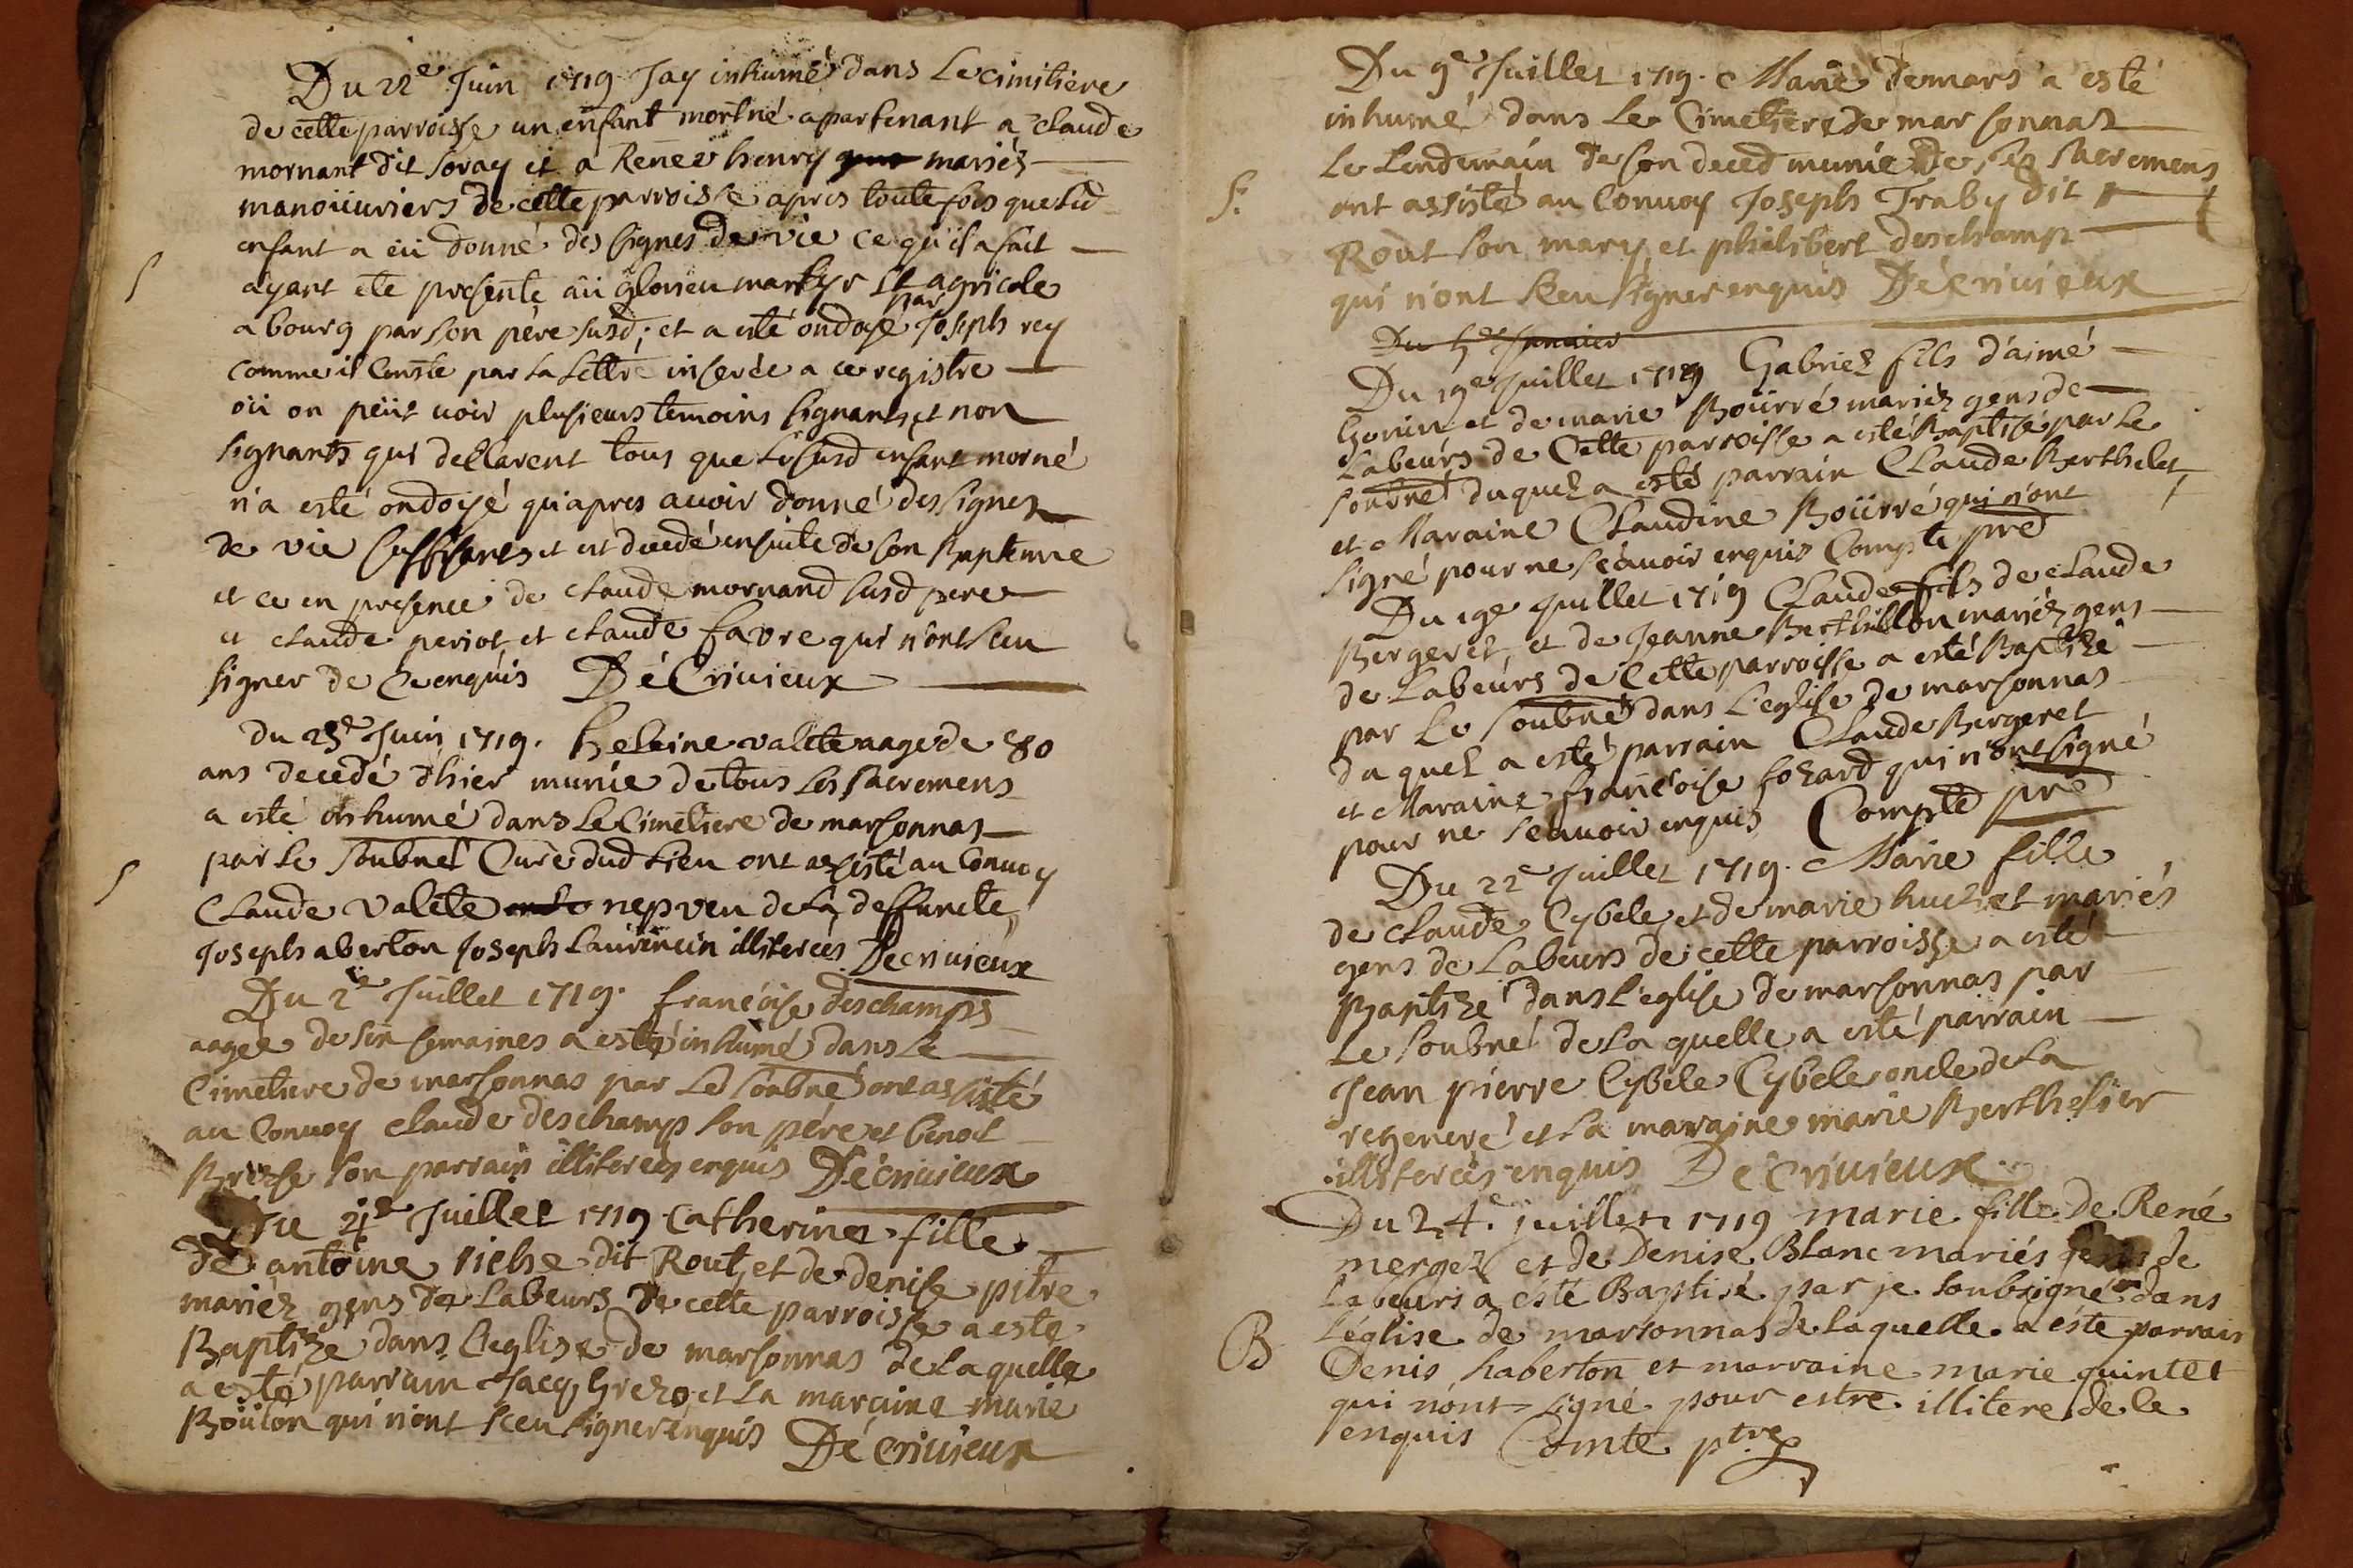 Du 22e Juin 1719 Jay inhumé dans Le cimitiere
de cette parroisse un enfant mortné apartenant a claude
mornant dit Soray et a Renee henry mariés
manoüuriers de cette parroisse apres toute fois que Led
enfant a eü donné des signes de vie ce qu'il a fait
S
ayant ete presente aü glorieu martyr St agricole
a bourg par son père susd; et a esté ondoyé par Joseph rey
comme il Conste par la Lettre inserée a ce registre
oü on peüt voir plusieurs temoins signants et non
signants qui declarent tous que Le susd enfant morné
n'a esté ondoyé qu'apres avoir donné des signes
de vie suffisants et est decedé ensuite de son Bapteme
et ce en presence de claude mornand susd pere
et claude periot et claude favre qui n'ont sceu
signer de Ce enquis DéCrivieux
Du 25e Juin 1719. heleine valete aagé de 80
ans decedé d'hier munie de tous Les sacremens
a esté inhumé dans Le Cimetiere de marsonnas
par Le soubné Curé dud Lieu ont assisté au Convoy
S
Claude valete nepveu de La deffuncte
Joseph aberton Joseph Laurencin illiterées Decrivieux
Du 2e Juillet 1719. francoise deschamps
aagée de six semaines a esté inhumé dans Le
Cimetiere de marsonnas par Le soubné ont assisté
au Convoy claude deschamp son père et benoit
son parrain illiterées enquis Décrivieux
Du 4e Juillet 1719 Catherine fille
de antoine dit Rout et de denise pitre
mariéz gens de Labeurs de cette parroisse a esté
Baptizé dans L'eglise de marsonnas de La quelle
a esté parrain Jacq et La maraine marie
Bouton qui n'ont sceu signer enquis Décrivieux
Du 9e Juillet 1719. Marie demars a esté
inhumé dans Le Cimetiere de marsonnas
Le Lendemain de son deced munie de ses sacremens
S.
ont assisté au Convoy Joseph Traby dit
Rout son mary et philibert deschamp
qui n'ont sceu signer enquis Décrivieux
Du 5e Janvier
Du 19e Juillet 1719 Gabriel fils d'aimé
Gonin et de marie Boürré mariéz gens de
Labeurs de Cette parroisse a esté Baptisé par Le
soubné duquel a esté parrain Claude Berthelet
et Maraine Claudine Boürré qui n'ont
signé pour ne sçavoir enquis Compte pre
Du 19e Juillet 1719 Claude fils de claude
Bergeret, et de Jeanne Berthillon mariéz gens
de Labeurs de Cette parroisse a esté Baptizé
par Le soubné dans L'eglise de marsonnas
du quel a esté parrain Claude Bergeret
et Maraine francoise fozard qui n'ont signé
pour ne sçavoir enquis Compte pre
Du 22e Juillet 1719. Marie fille
de claude Cybele et de marie huchet mariés
gens de Labeurs de cette parroisse a esté
Baptizé dans L'eglise de marsonnas par
Le soubné de La quelle a esté parrain
Jean pierre Cybele Cybele oncle de La
regeneré et La maraine marie Berthelier
illiterées enquis DéCrivieux
Du 24. juillet 1719 marie fille de René
mergez et de Denise Blanc mariés gens de
Labeurs a esté Baptisé par je soubsigné dans
B
L'église de marsonnas de Laquelle a éste parrain
Denis haberton et marraine marie quintet
qui n'ont signé pour estre illitere de le
enquis Comte ptre